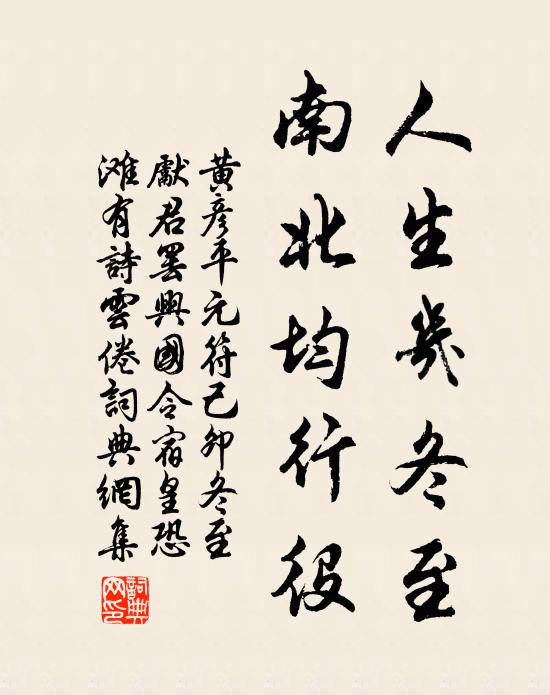 人生幾冬至
南北均行役
黄彥平元符己卯冬至
獻君罷興國令宿皇恐
滩有詩雲倦詞典網集
詞典
网印